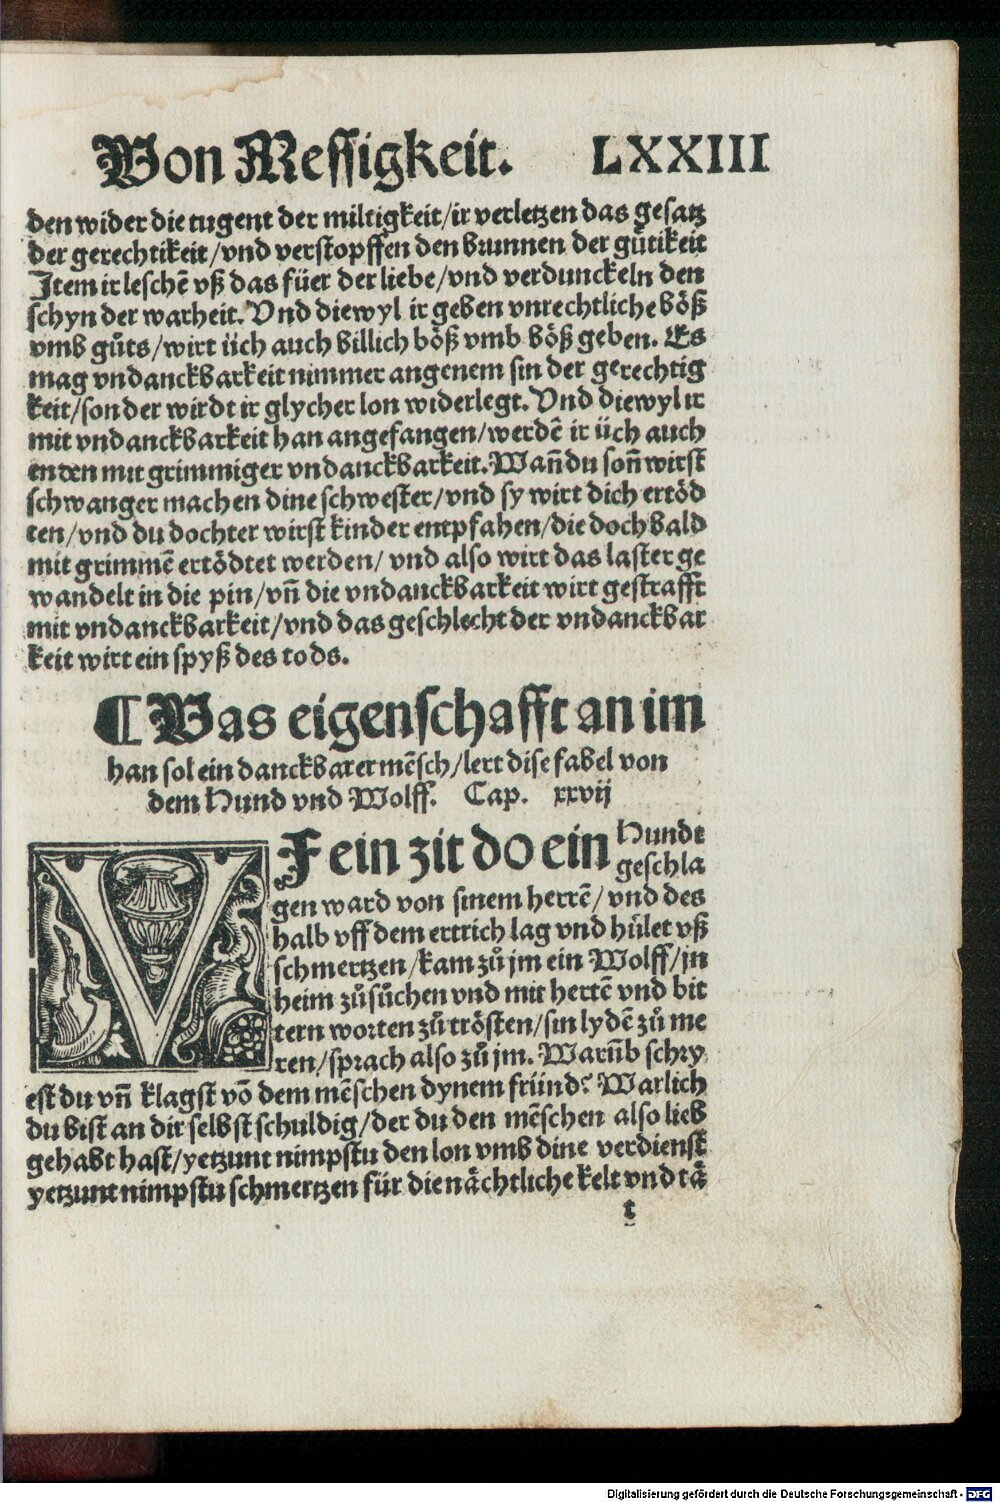 Von Messigkeit. LXXIII
den wider die tugent der miltigkeit/ir verletzen das gesatz
der gerechtikeit/vnd verstopffen den brunnen der gůtikeit
Item ir leschē vß das füer der liebe/vnd verdunckeln den
schyn der warheit. Vnd diewyl ir geben vnrechtliche böß
vmb gůts/wirt üch auch billich böß vmb böß geben. Es
mag vndanckbarkeit nimmer angenem sin der gerechtig
keit/sonder wirdt ir glycher lon widerlegt. Vnd diewyl ir
mit vndanckbarkeit han angefangen/werdē ir üch auch
enden mit grimmiger vndanckbarkeit. Wañ du soñ wirst
schwanger machen dine schwester/vnd sy wirt dich ertöd
ten/vnd du dochter wirst kinder entpfahen/die doch bald
mit grimmē ertödtet werden/ vnd also wirt das laster ge
wandelt in die pin/vñ die vndanckbarkeit wirt gestrafft
mit vndanckbarkeit/vnd das geschlecht der vndanckbar
keit wirt ein spyß des tods.
¶ Was eigenschafft an im
han sol ein danckbarer mēsch/lert dise fabel von
dem Hund vnd Wolff. Cap. xxvij
VF ein zit do ein Hundt
geschla
gen ward von sinem herrē/ vnd des
halb vff dem ertrich lag vnd hület vß
schmertzen/kam zů jm ein Wolff/jn
heim zůsůchen vnd mit hertē vnd bit
tern worten zů trösten/sin lydē zů me
ren/sprach also zů jm. Warūb schry
est du vñ klagst vō dem mēschen dynem fründ? Warlich
du bist an dir selbst schuldig/der du den mēschen also lieb
gehabt hast/yetzunt nimpstu den lon vmb dine verdienst
yetzunt nimpstu schmertzen für die nächtliche kelt vnd tå
t
Digitalisierung gefördert durch die Deutsche Forschungsgemeinschaft - DFG